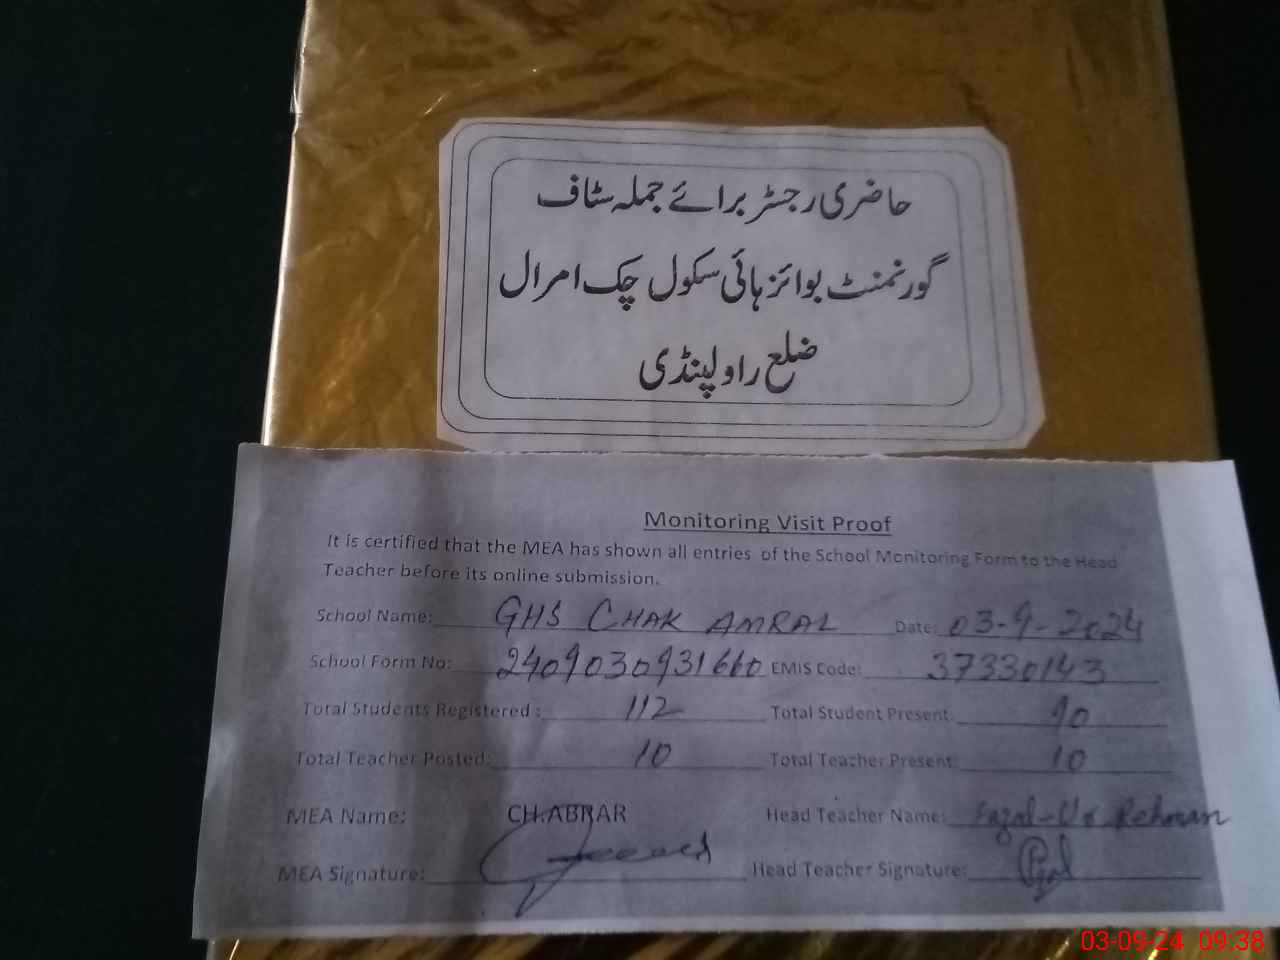 حاضری رجسٹر برائے جملہ سٹاف
گورنمنٹ بوائز ہائی سکول چک امرال
ضلع راولپنڈی
Monitoring Visit Proof
It is certified that the MEA has shown all entries of the School Monitoring Form to the Head
Teacher before its online submission.
School Name: GHS CHAK AMRAL Date: 03-9-2024
School Form No: 2409030931660 EMIS Code: 37330143
Total Students Registered: 112 Total Student Present: 90
Total Teacher Posted: 10 Total Teacher Present: 10
MEA Name: CH.ABRAR Head Teacher Name: Fazal-Ur Rehman
MEA Signature: Head Teacher Signature:
03-09-24 09:38